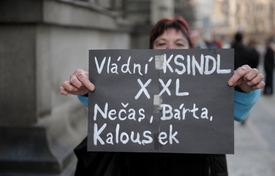 Vládní KSINDL
XXL
Nečas, Bárta,
Kalousek